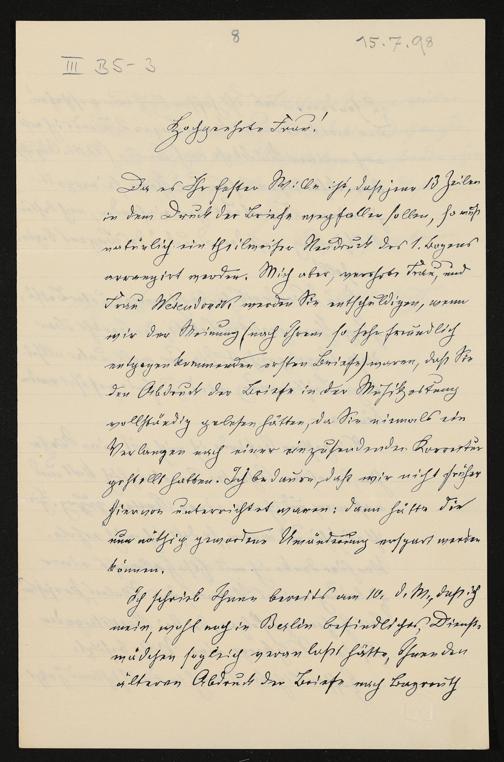 8
15.7.98
III B5-3
Hochgeehrte Frau!
Da es Ihr fester Wille ist, daß jene 13 Zeilen
in dem Druck der Briefe wegfallen sollen, so muß
natürlich ein theilweiser Neudruck des 1. Bogens
arrangirt werden. Mich aber, verehrte Frau, und
Frau Wesendonk werden Sie entschuldigen, wenn
wir der Meinung (nach Ihrem so sehr freundlich
entgegenkommenden ersten Briefe) waren, daß Sie
den Abdruck der Briefe in der Musikzeitung
vollständig gelesen hätten, da Sie niemals ein
Verlangen nach einer einzusendenden Korrektur
gestellt hatten. Ich bedaure, daß wir nicht früher
hiervon unterrichtet waren: dann hätte die
nun nöthig gewordene Umänderung erspart werden
können.
Ich schrieb Ihnen bereits am 10. d. M., daß ich
mein, wohl noch in Berlin befindliches, Dienst-
mädchen sogleich veranlaßt hätte, Ihnen den
älteren Abdruck der Briefe nach Bayreuth